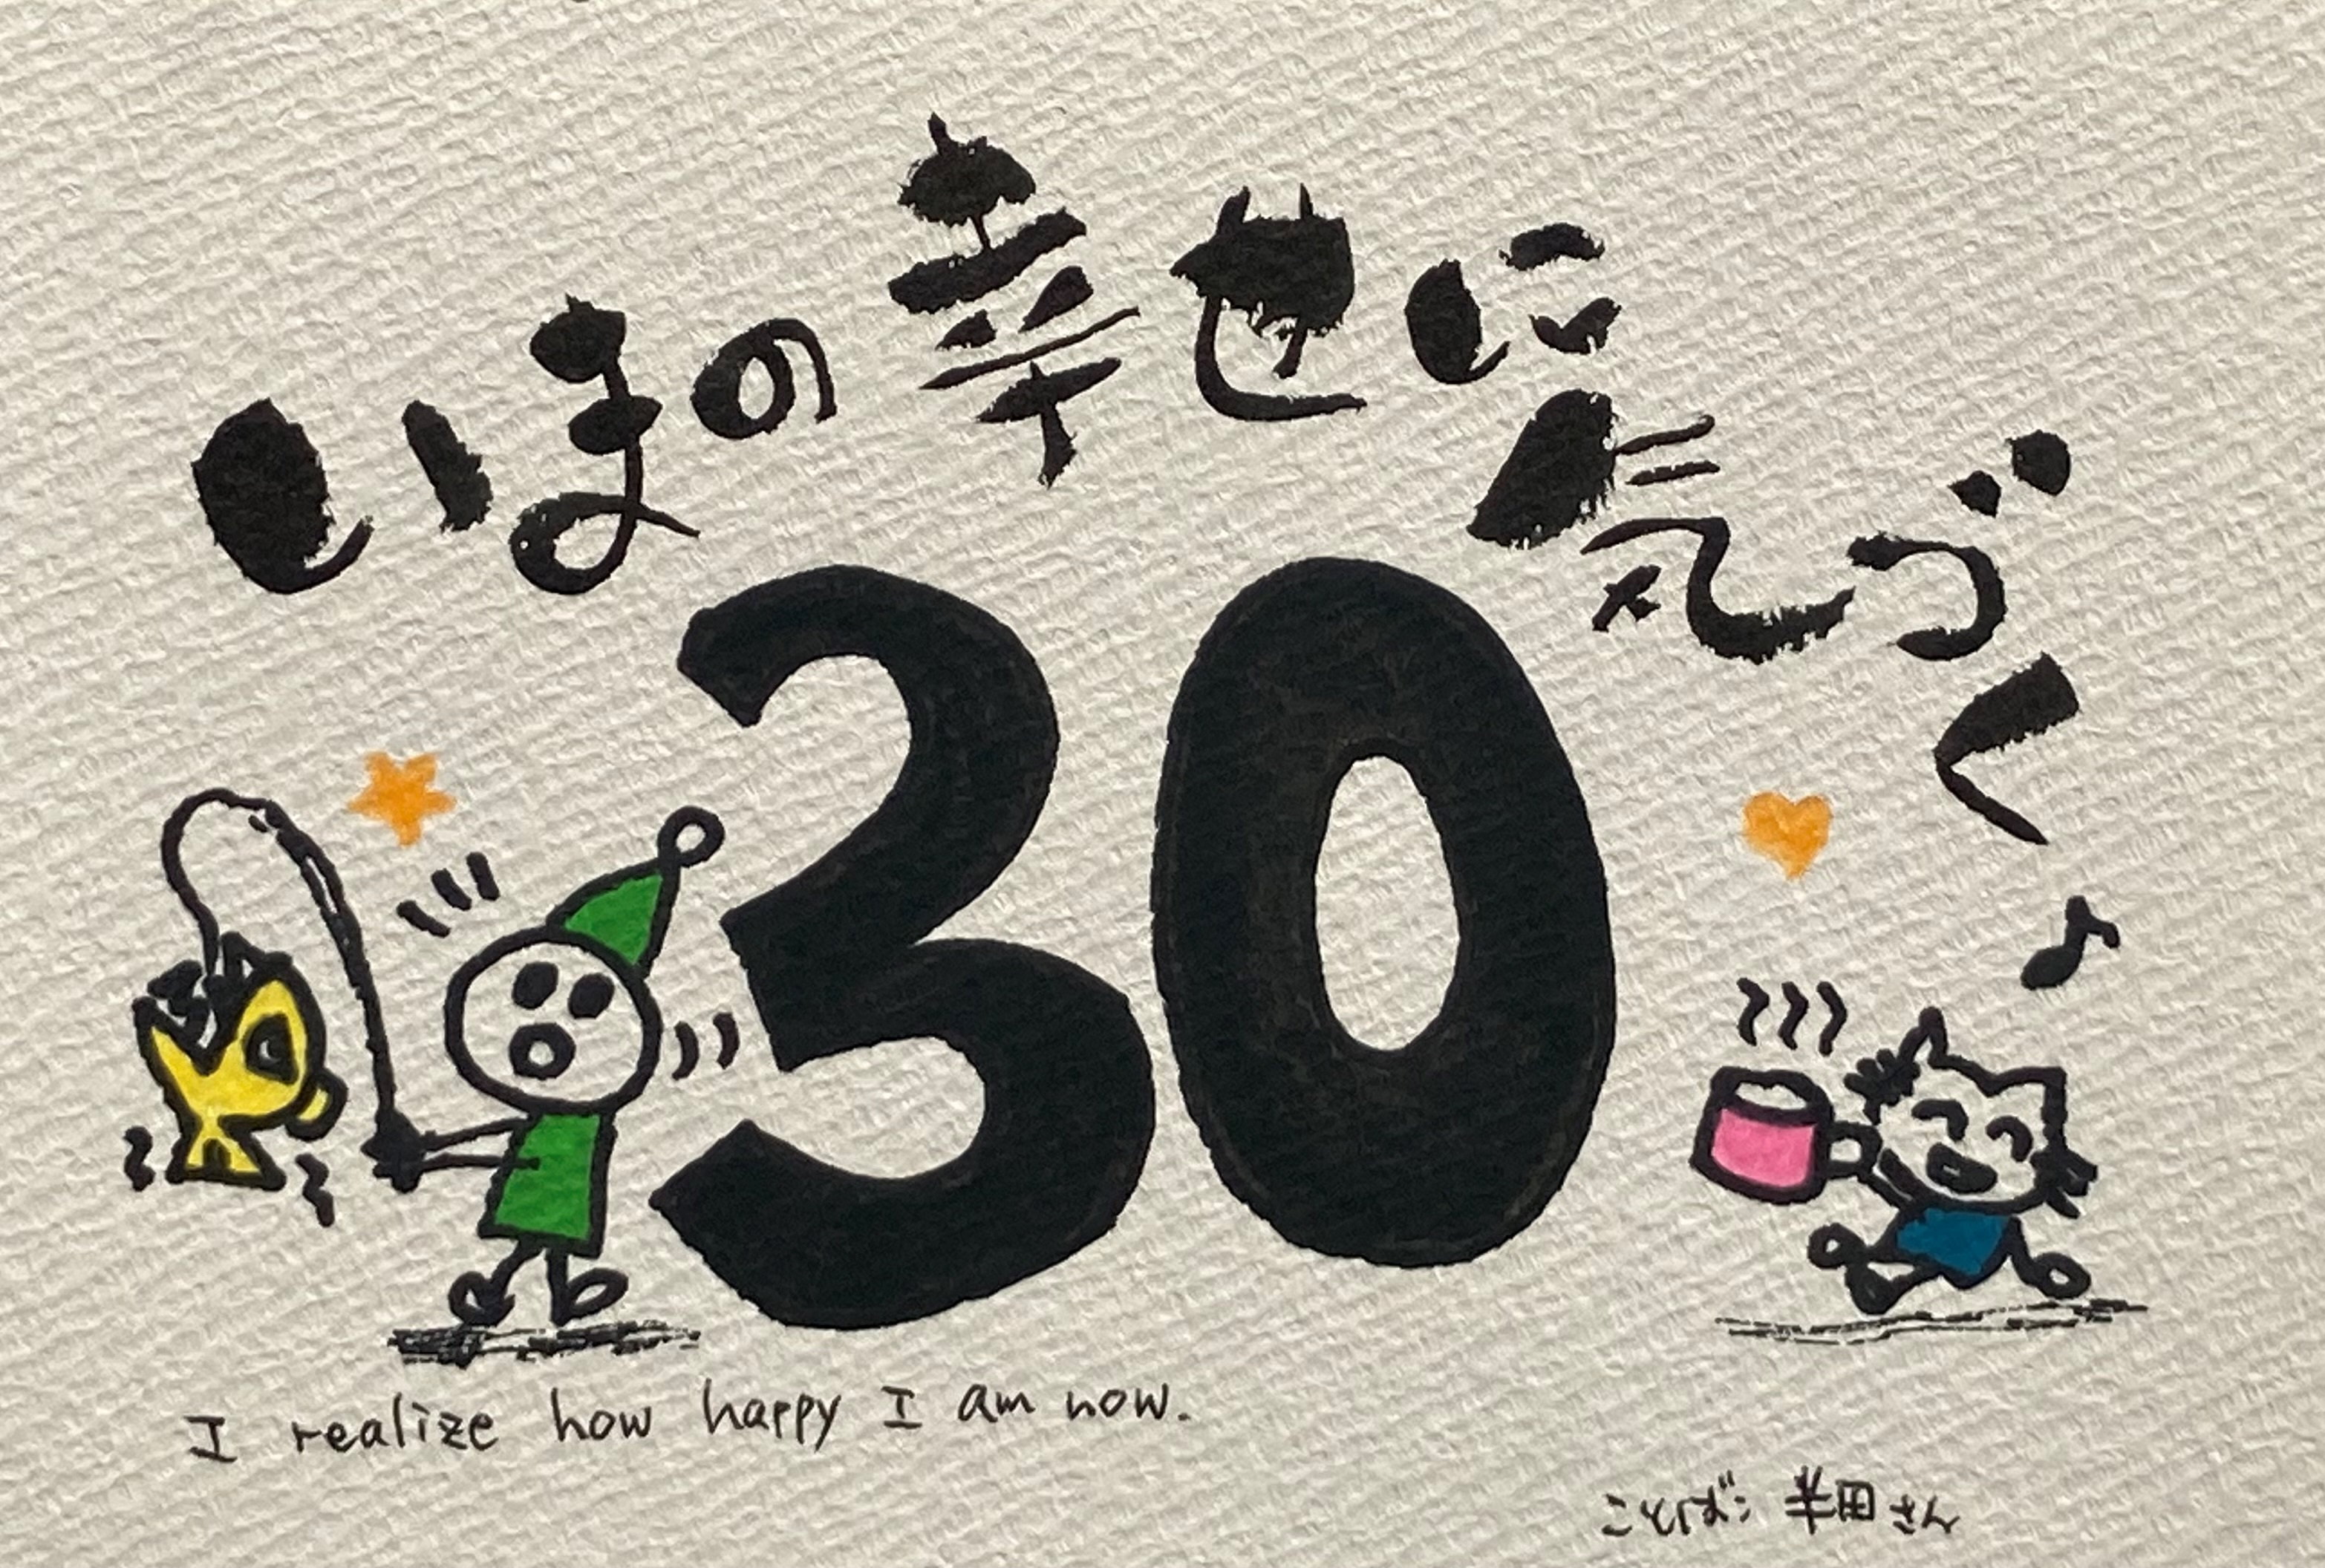 いまの幸せに気づく
30
I realize how happy I am now.
ことば: 半田さん